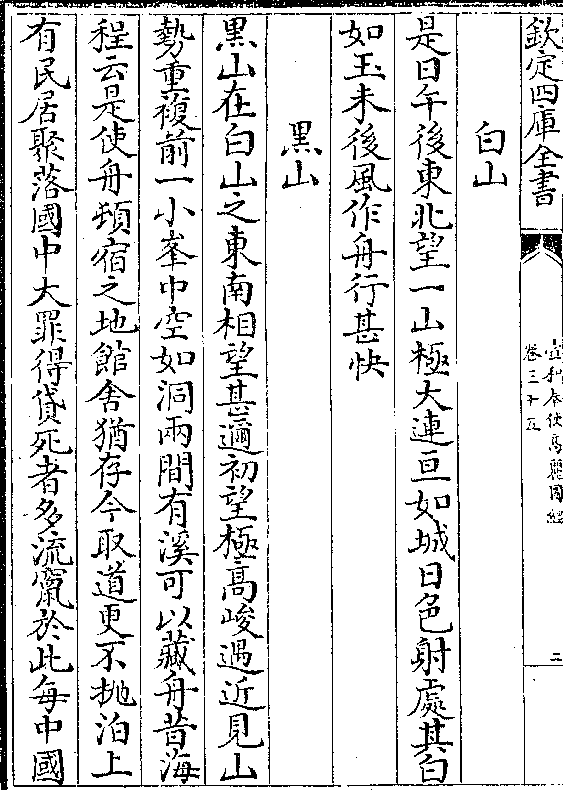 欽定四庫全書
宣和奉使高麗圖經
卷三十五
二
白山
是日午後東北望一山極大連亘如城日色射處其白
如玉未後風作舟行甚快
黑山
黑山在白山之東南相望甚邇初望極高峻逼近見山
勢重複前一小峯中空如洞兩間有溪可以藏舟昔海
程云是使舟頓宿之地館舍猶存今取道更不抛泊上
有民居聚落國中大罪得貸死者多流竄於此每中國